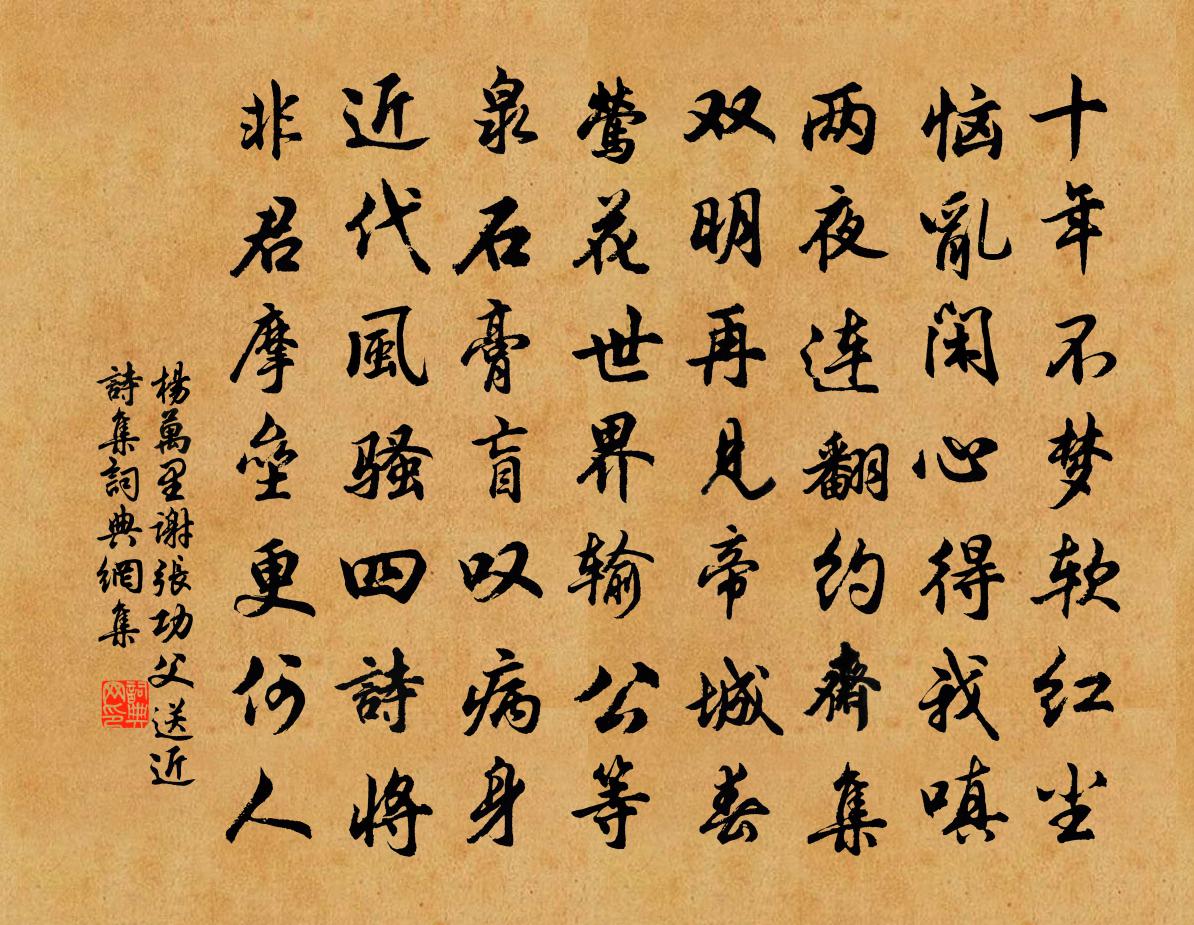 十年不梦软红尘
恼亂闲心得我嗔
两夜连翻约齋集
双明再见帝城春
莺花世界输公等
泉石膏盲叹病身
近代風骚四詩将
非君摩壘更何人
楊萬里谢張功父送近
詩集詞典網集
詞典
网印